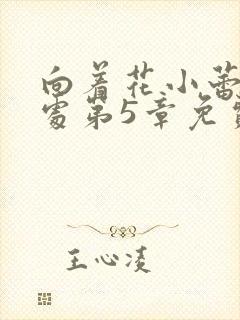 向着花小蕾
处第5章免费
王心凌